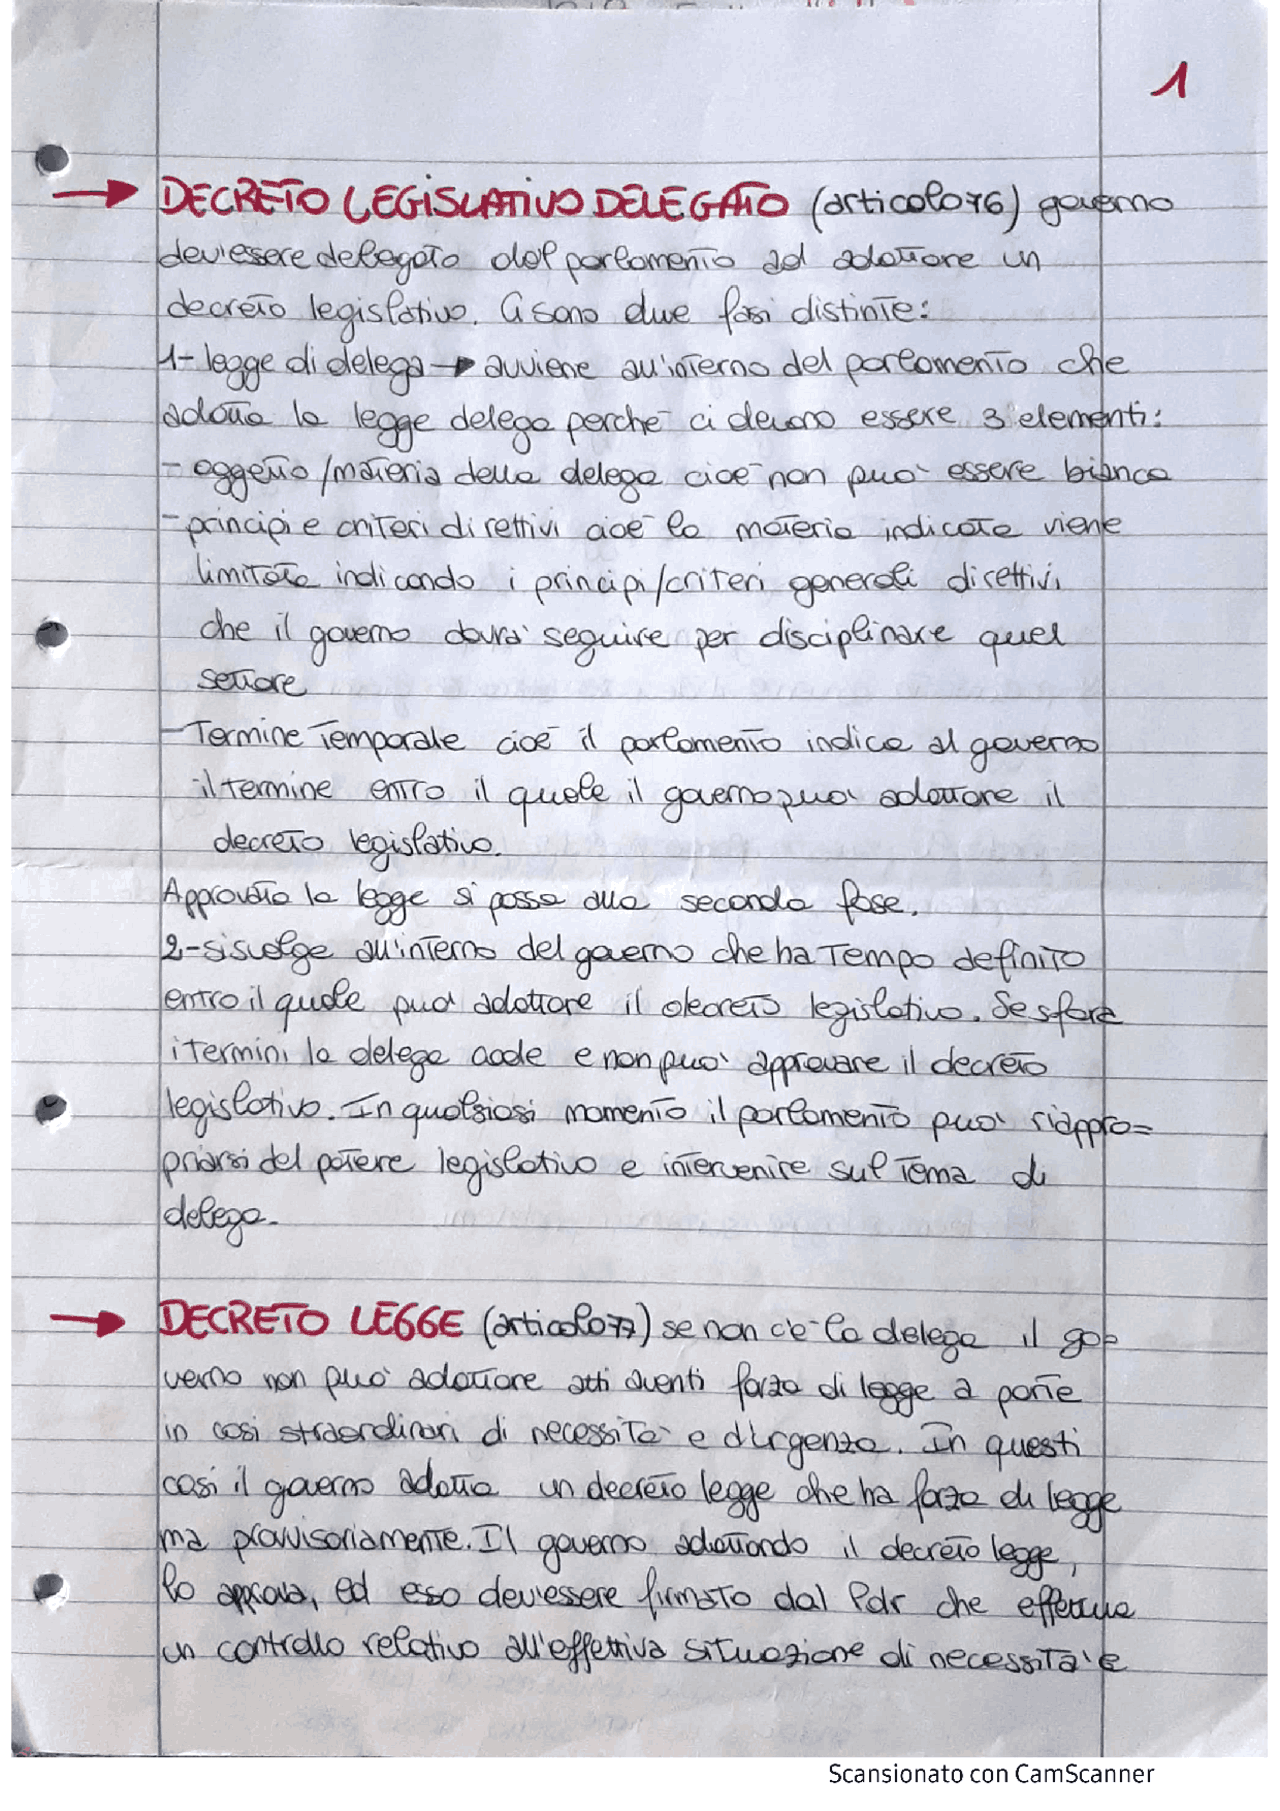 1
→ DECRETO LEGISLATIVO DELEGATO (articolo 76) governo
dev'essere delegato dal parlamento ad adottare un
decreto legislativo. Ci sono due fasi distinte:
1- legge di delega → avviene all'interno del parlamento che
adotta la legge delega perchè ci devono essere 3 elementi:
- oggetto/materia della delega cioè non può essere bianca
- principi e criteri direttivi cioè la materia indicata viene
limitata indicando i principi/criteri generali direttivi
che il governo dovrà seguire per disciplinare quel
settore
- Termine Temporale cioè il parlamento indica al governo
il termine entro il quale il governo può adottare il
decreto legislativo.
Approvata la legge si passa alla seconda fase.
2- si svolge all'interno del governo che ha Tempo definito
entro il quale può adottare il decreto legislativo. Se sfora
i Termini la delega cade e non può approvare il decreto
legislativo. In qualsiasi momento il parlamento può riappro=
priarsi del potere legislativo e intervenire sul Tema di
delega.
→ DECRETO LEGGE (articolo 77) se non c'è la delega il go=
verno non può adottare atti aventi forza di legge a parte
in casi straordinari di necessità e d'urgenza. In questi
casi il governo adotta un decreto legge che ha forza di legge
ma provvisoriamente. Il governo adottando il decreto legge,
lo approva, ed esso dev'essere firmato dal Pdr che effettua
un controllo relativo all'effettiva situazione di necessità e
Scansionato con CamScanner